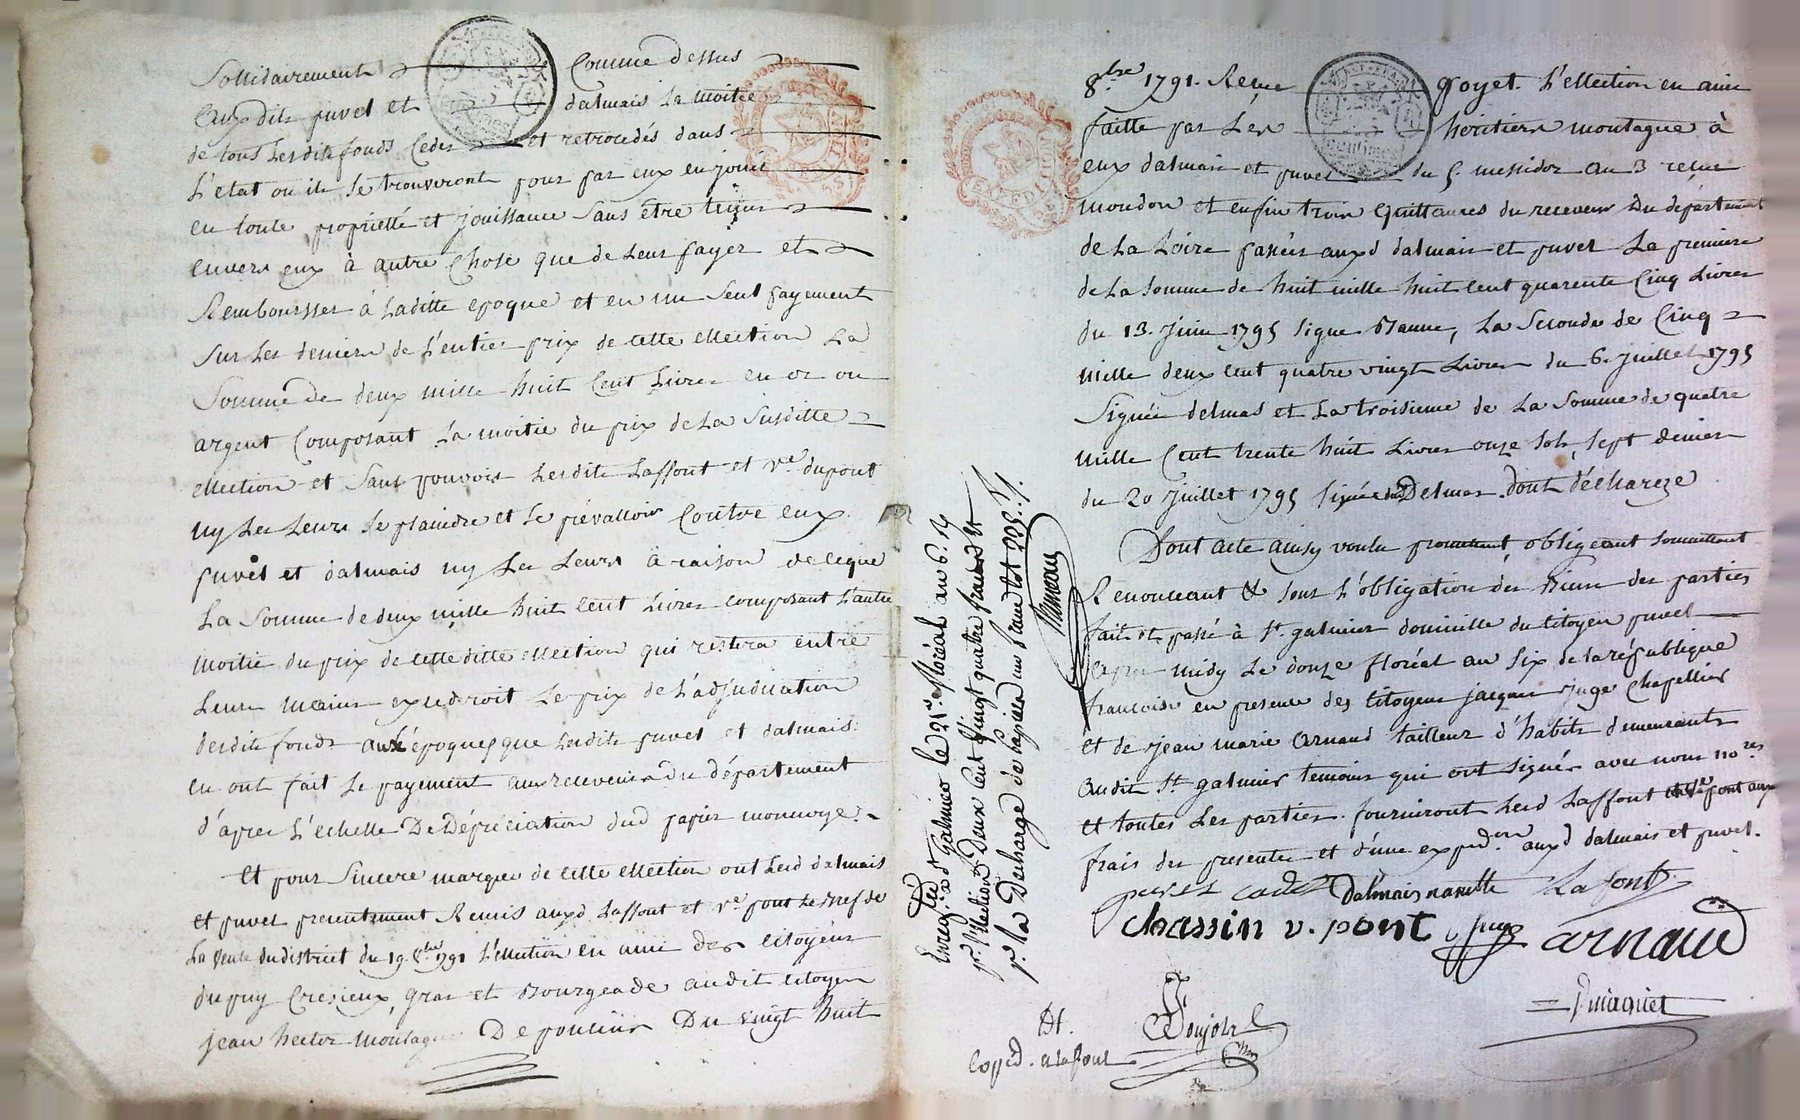 Sollidairement Comme dessus
auxdits puvel et dalmais La moitié
de tous Lesdits fonds Cedés et retrocedés dans
L'etat ou ils se trouveront pour par eux en jouir
en toute proprietté et jouissance sans être tenus
envers eux à autre Chose que de Leur payer et
Remboursser à Laditte epoque et en un seul payement
sur Les deniers de L'entier prix de cette ellection La
Somme de deux mille huit Cent Livres en or ou
argent Composant La moitié du prix de La Susditte
ellection et sans pouvoir Lesdits Laffont et Ve. dupont
ny Les Leurs se plaindre et se prévalloir Contre eux
puvel et dalmais ny Les Leurs à raison de ceque
La Somme de deux mille huit Cent Livres composant L'autre
moitié du prix de cette ditte ellection qui restera entre
Leurs mains excedroit Le prix de L'adjudication
desdits fonds aux époques que Lesdits puvel et dalmais
en ont fait Le payement aux receveurs Du département
d'apres L'echelle De Dépréciation dud papier monnoye.
Et pour Sincere marque de cette ellection ont Lesd dalmais
et puvel presentement Remis auxd Laffont et Ve. pont Le Bref de
La vente du district du 19. 8bre 1791 L'ellection en amie des citoyens
dupuy Cresieux, gras et Bourgeade audit citoyen
jean hector montagne De poncins Du vingt huit
8bre 1791. Reçue goyet. L'ellection en amie
faitte par Les heritiers montagne à
eux dalmais et puvel du 5. messidor an 3 reçue
mondon et enfin trois Quittances du receveur Du département
de La Loire passées auxd dalmais et puvel La premiere
de La Somme de huit mille huit Cent quarente Cinq Livres
du 13. Juin 1795 signé , La Seconde de Cinq
mille deux cent quatre vingt Livres du 6. Juillet 1795
Signée delmas et La troisieme de La Somme de quatre
mille Cent trente huit Livres onze sols sept deniers
du 20 Juillet 1795 signée Delmas. dont décharge
Dont acte ainsy voulu promettant, obligeant soumettant
Renonceant & sous L'obligation des Biens des parties
fait et passé à St. galmier domicille du citoyen puvel
apres midy Le douze floréal an six de la république
francoise en presence des citoyens jacques juge Chapellier
et de jean marie arnaud tailleur d'habits demeurants
audit St galmier temoins qui ont signés avec nous nores
et toutes Les parties. fourniront Lesd Laffont et Ve. pont aux
frais des presentes et d'une exped.on auxd dalmais et puvel.
puvel cadet Dalmais La font
chassin v. pont juge arnaud
Enregistré à St Galmier le 21. floréal an 6. 
pr. l'Ellection Deux Cent Vingt quatre francs
pr. la Decharge de papiers un franc tot 225. f.